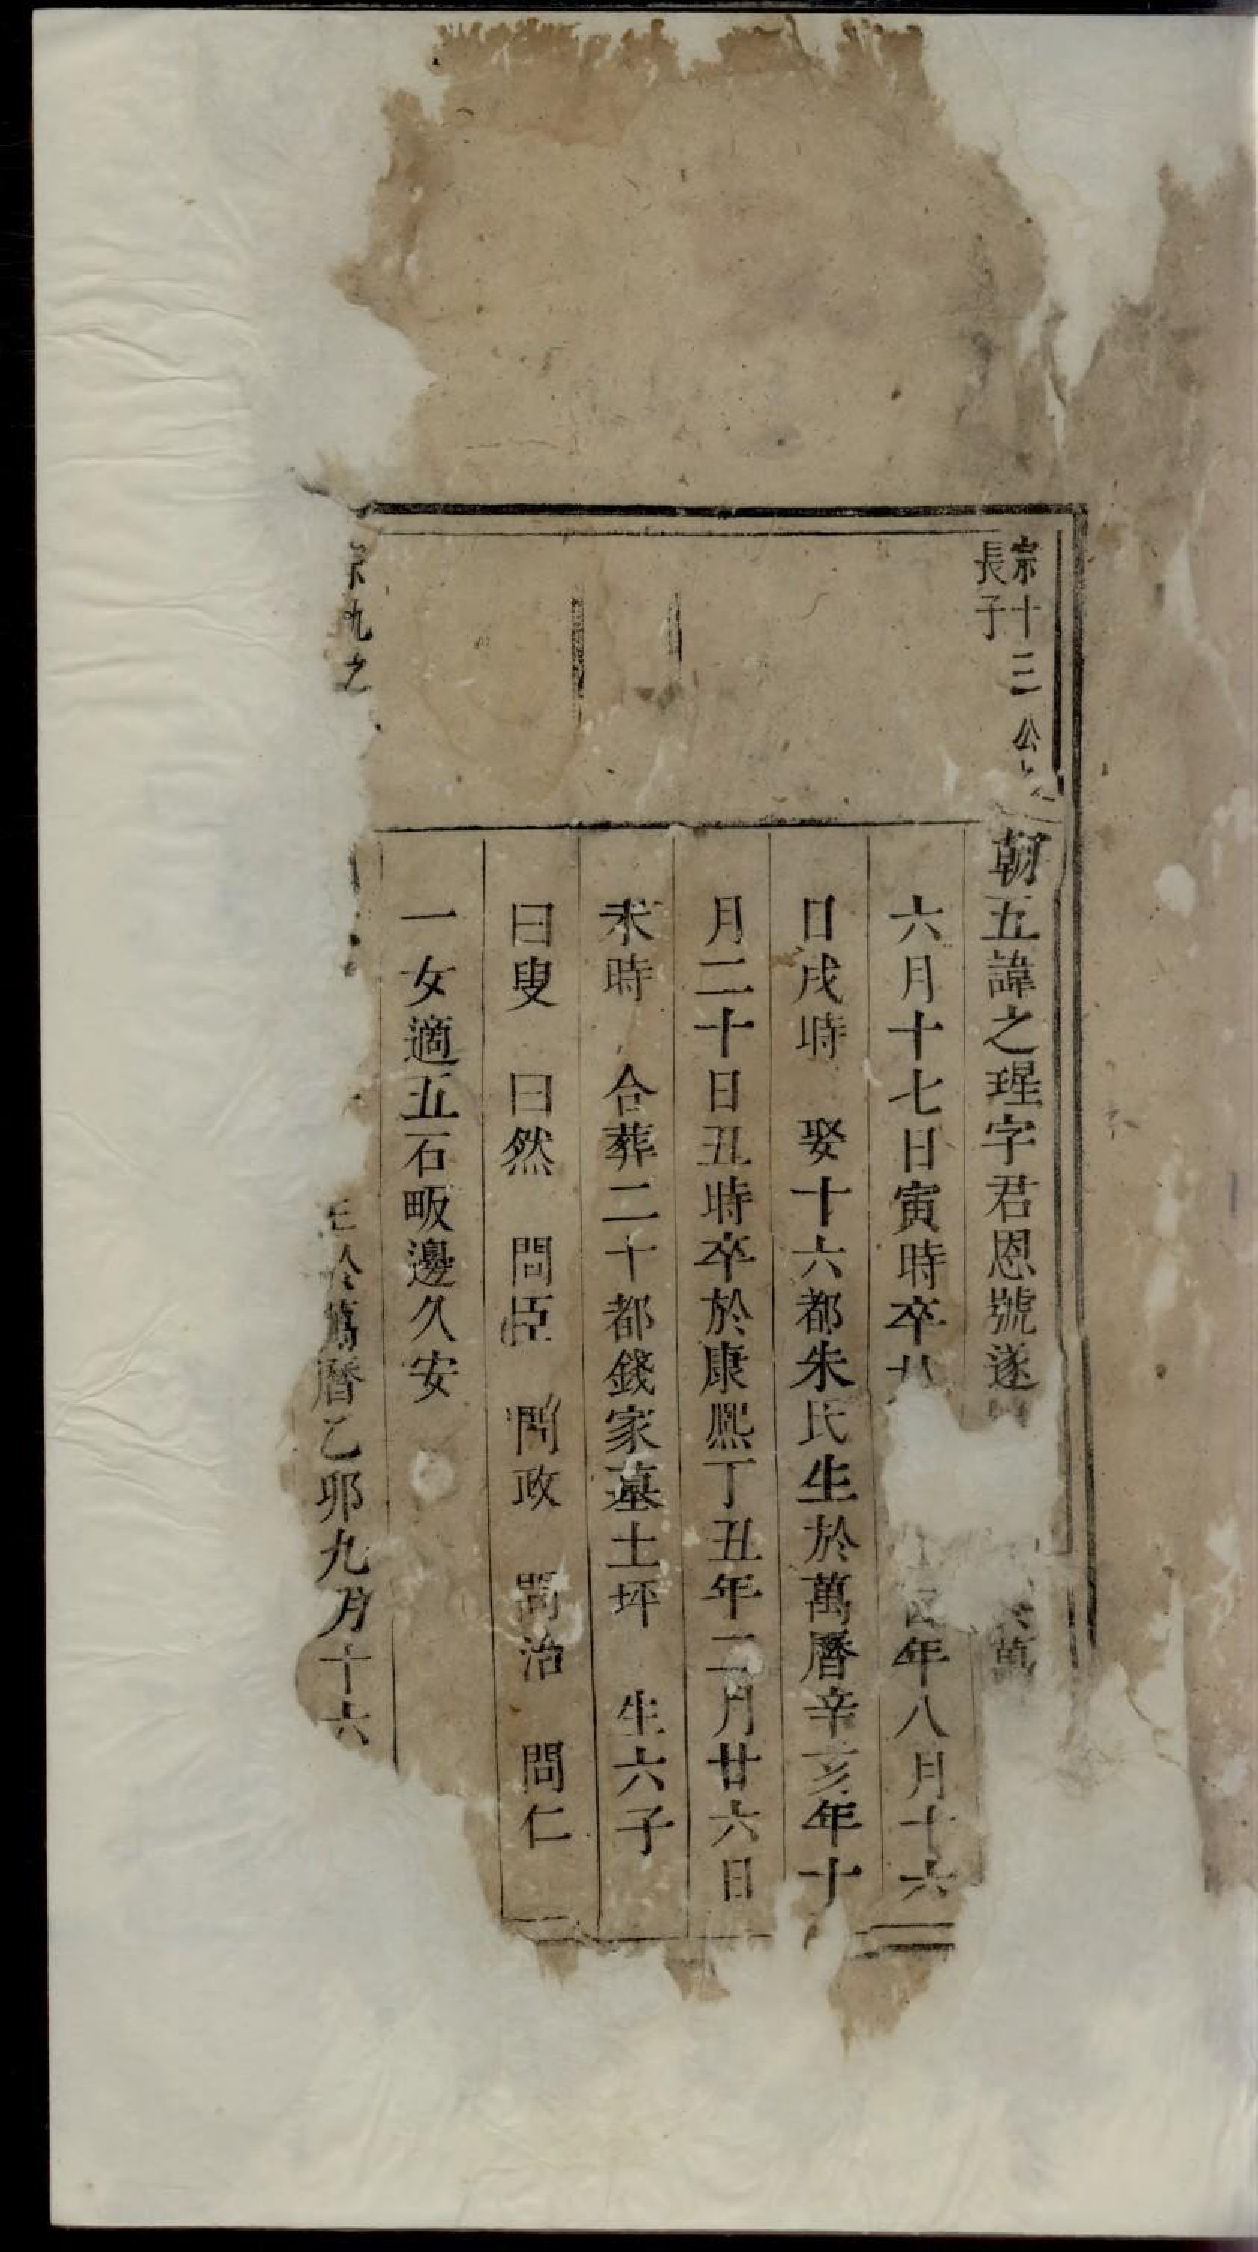 宗十三公之
長子
朝五諱之瑆字君恩號遂 萬
六月十七日寅時卒 年八月十六
日戌時 娶十六都朱氏生於萬曆辛亥年十
月二十日丑時卒於康熙丁丑年二月廿六日
未時 合葬二十都錢家墓土坪 生六子
曰叟 曰然 問臣 問政 問治 問仁
一女適五石畈邊久安
宗九之
生於萬曆乙卯九月十六